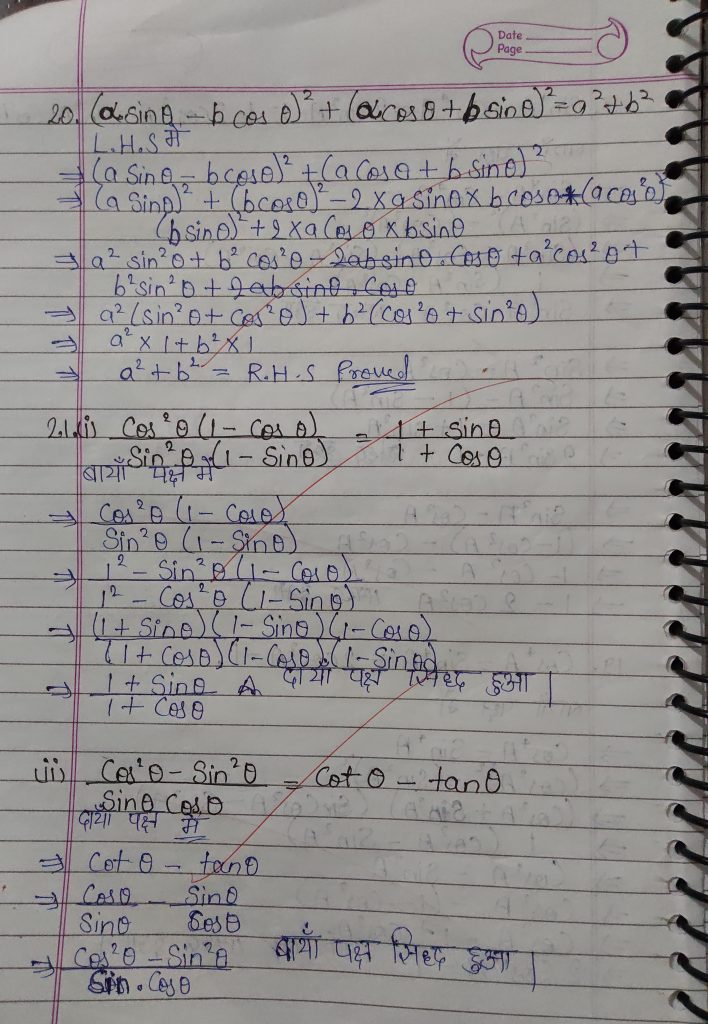 Date
Page
20. (a sinθ - b cos θ)² + (a cos θ + b sinθ)² = a² + b²
L.H.S में
⇒ (a Sinθ - b cosθ)² + (a Cosθ + b sinθ)²
⇒ (a Sinθ)² + (b cosθ)² - 2 × a sinθ × b cosθ + (a cos²θ)
(b sinθ)² + 2 × a Cosθ × b sinθ
⇒ a² sin²θ + b² cos²θ - 2ab sinθ . Cosθ + a² cos²θ +
b² sin²θ + 2ab sinθ . Cosθ
⇒ a² (sin²θ + cos²θ) + b² (cos²θ + sin²θ)
⇒ a² × 1 + b² × 1
⇒ a² + b² = R.H.S Proved
21.(i) Cos²θ (1 - Cos θ) / Sin²θ (1 - Sinθ) = 1 + sinθ / 1 + Cosθ
बायाँ पक्ष में
⇒ Cos²θ (1 - Cosθ) / Sin²θ (1 - Sinθ)
⇒ 1² - Sin²θ (1 - Cosθ) / 1² - Cos²θ (1 - Sinθ)
⇒ (1 + Sinθ) (1 - Sinθ) (1 - Cosθ) / (1 + Cosθ) (1 - Cosθ) (1 - Sinθ)
⇒ 1 + Sinθ / 1 + Cosθ दायाँ पक्ष सिध्द हुआ |
(ii) Cos²θ - Sin²θ / Sinθ Cosθ = Cot θ - tanθ
दायाँ पक्ष में
⇒ Cot θ - tanθ
⇒ Cosθ / Sinθ - Sinθ / Cosθ
⇒ Cos²θ - Sin²θ / Sin . Cosθ बायाँ पक्ष सिध्द हुआ |